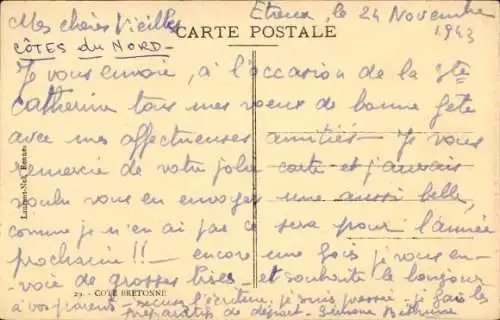 Mes chères Vieilles
Etreux, le 24 Novembre
1943
CARTE POSTALE
CÔTES DU NORD -
Je vous envoie, à l'occasion de la Ste
Catherine tous mes voeux de bonne fête
avec mes affectueuses amitiés - Je vous
remercie de votre jolie carte et j'aurais
voulu vous en envoyer une aussi belle,
comme je n'en ai pas ce sera pour l'année
prochaine !! - encore une fois je vous en-
voie de grosses bises - et souhaite le bonjour
à vos parents - excuses l'écriture, je suis pressée - je fais les
préparatifs de départ - Simone
29. - COTE BRETONNE
Laurent-Nel, Rennes